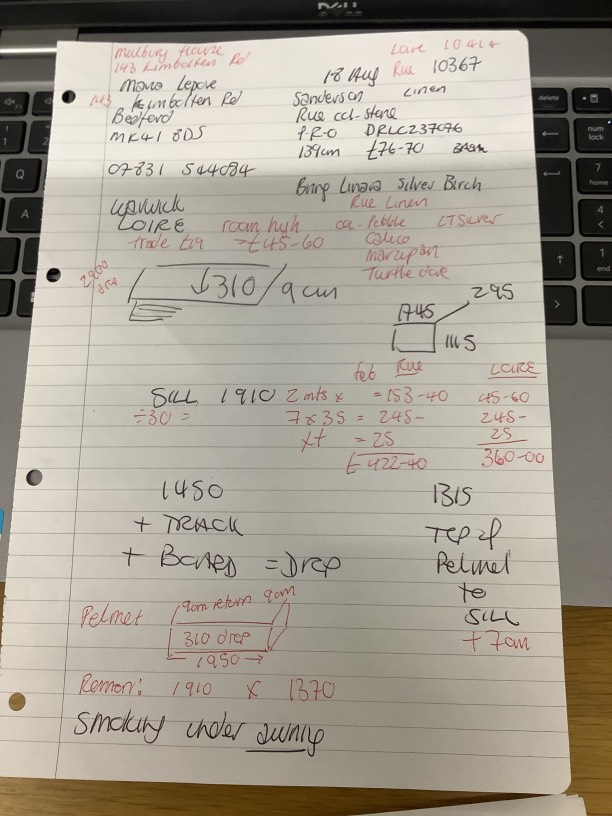 DELL
Mulbury House
143 Kimbolton Rd
Loire 10414
18 Aug Rue 10367
Maria Lepore
143 Kimbolton Rd
Sanderson Linen
Bedford
Rue col-stone
MK41 8DS
P.R-O DRLC237076
139cm £76-70
07831 544084
Bring Linara Silver Birch
Rue Linen
LOIRE roman high col-Pebble LT Silver
trade £19 =£45-60 Calico
Marzipan
Turtle dove
2900
drop
↓310 9cm
295
1745
1115
feb Rue LOIRE
SILL 1910 2mts x = 153-40 45-60
÷30 = 7x35 = 245- 245-
= 25 25
£422-40 360-00
1450 1315
+ TRACK TOP of
+ BOARD = Drop Pelmet
to
SILL
+ 7cm
Pelmet 9cm return 9cm
310 drop
← 1950 →
Roman: 1910 x 1370
Smoking under awning
delete
num lock
7
home
4
1
end
Q
A